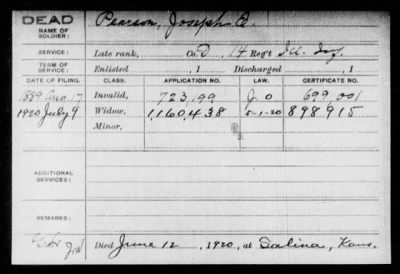 DEAD
NAME OF SOLDIER: Pearson, Joseph
SERVICE: Late rank, Co. D, 14 Reg't Ill. Inf.
TERM OF SERVICE: Enlisted , 1 Discharged , 1
DATE OF FILING. CLASS. APPLICATION NO. LAW. CERTIFICATE NO.
1889 Aug. 17 Invalid, 723,199 G. O 699 001
1920 July 9 Widow, 1,160,438 5-1-20 898,915
Minor,
ADDITIONAL SERVICES:
REMARKS:
Died June 12, 1920, at Salina, Kans.